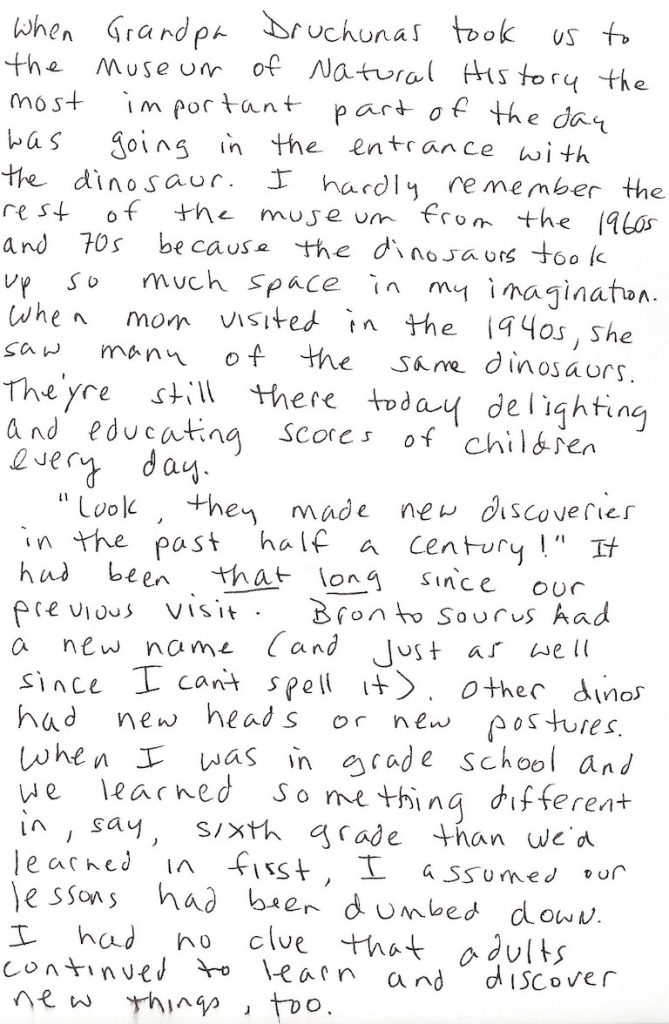 When Grandpa Druchunas took us to
the Museum of Natural History the
most important part of the day
was going in the entrance with
the dinosaur. I hardly remember the
rest of the museum from the 1960s
and 70s because the dinosaurs took
up so much space in my imagination.
When mom visited in the 1940s, she
saw many of the same dinosaurs.
They're still there today delighting
and educating scores of children
every day.
"Look, they made new discoveries
in the past half a century!" It
had been that long since our
previous visit. Brontosourus had
a new name (and just as well
since I can't spell it). Other dinos
had new heads or new postures.
When I was in grade school and
we learned something different
in, say, sixth grade than we'd
learned in first, I assumed our
lessons had been dumbed down.
I had no clue that adults
continued to learn and discover
new things, too.